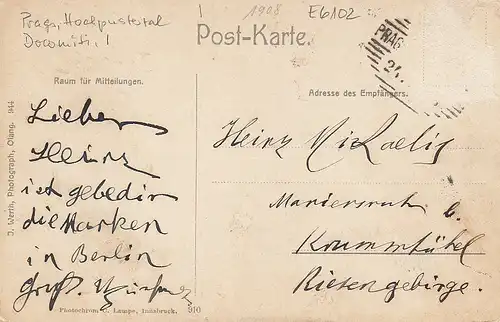 Prags, Hochpustertal
Dolomiti, !
!
1908
E6102
Post-Karte.
PRAG
24.
Raum für Mitteilungen.
Adresse des Empfängers.
Lieber
Heinz
ich gebe dir
die Marken
in Berlin
Gruß.
Heinz Michaelis
b.
Krummhübel
Riesengebirge.
J. Werth, Photograph, Olang. 944
Photochrom C. Lampe, Innsbruck.
910